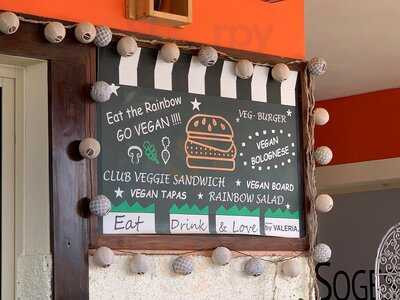 Eat the Rainbow
GO VEGAN !!!!
VEG- BURGER
VEGAN
BOLOGNESE
CLUB VEGGIE SANDWICH
VEGAN BOARD
VEGAN TAPAS
RAINBOW SALAD
Eat Drink & Love by VALERIA